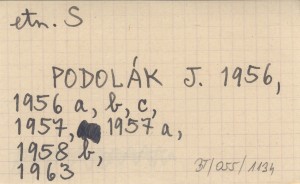 etn. S
PODOLÁK J. 1956,
1956 a, b, c,
1957, 1957 a,
1958 b,
1963
/055/1134